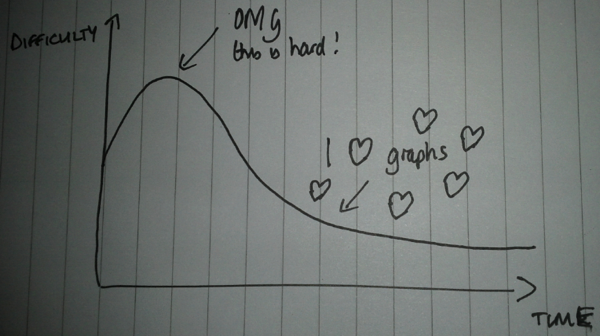 DIFFICULTY
OMG
this is hard!
I ♡ graphs
TIME